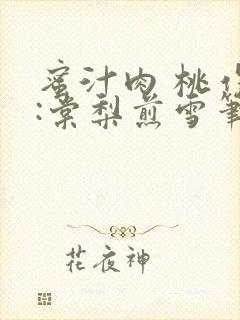 蜜汁肉桃作
:棠梨煎雪笔
花夜神